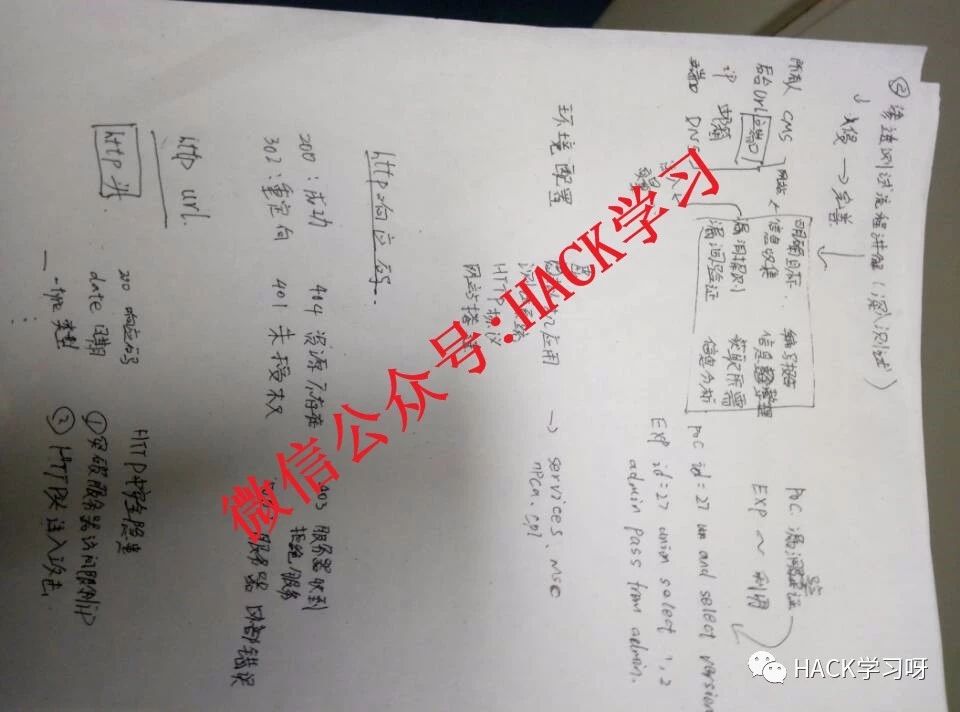 ② 渗透测试流程讲解（深入测试）
↓
线索 → 完善
所有人 CMS
后台Url 端口
ip
DNS
明确目标..
信息收集
漏洞探测
漏洞验证
编写报告
信息整理
获取所需
信息分析
PoC 漏洞验证
EXP ~ 利用
PoC id=27 and select version
EXP id=27 union select 1,2
admin pass from admin.
环境配置
应用
HTTP协议
网站搭
→ services.msc
npca.cpl
http响应码..
200：成功 404 资源不存在 403 服务器收到
拒绝服务
302：重定向 401 未授权 服务器内部错误
http url
http 头
200 响应码
date 日期
-type 类型
HTTP
① 突破服务器访问限制ip
② HTTP头注入攻击.
微信公众号:HACK学习
HACK学习呀